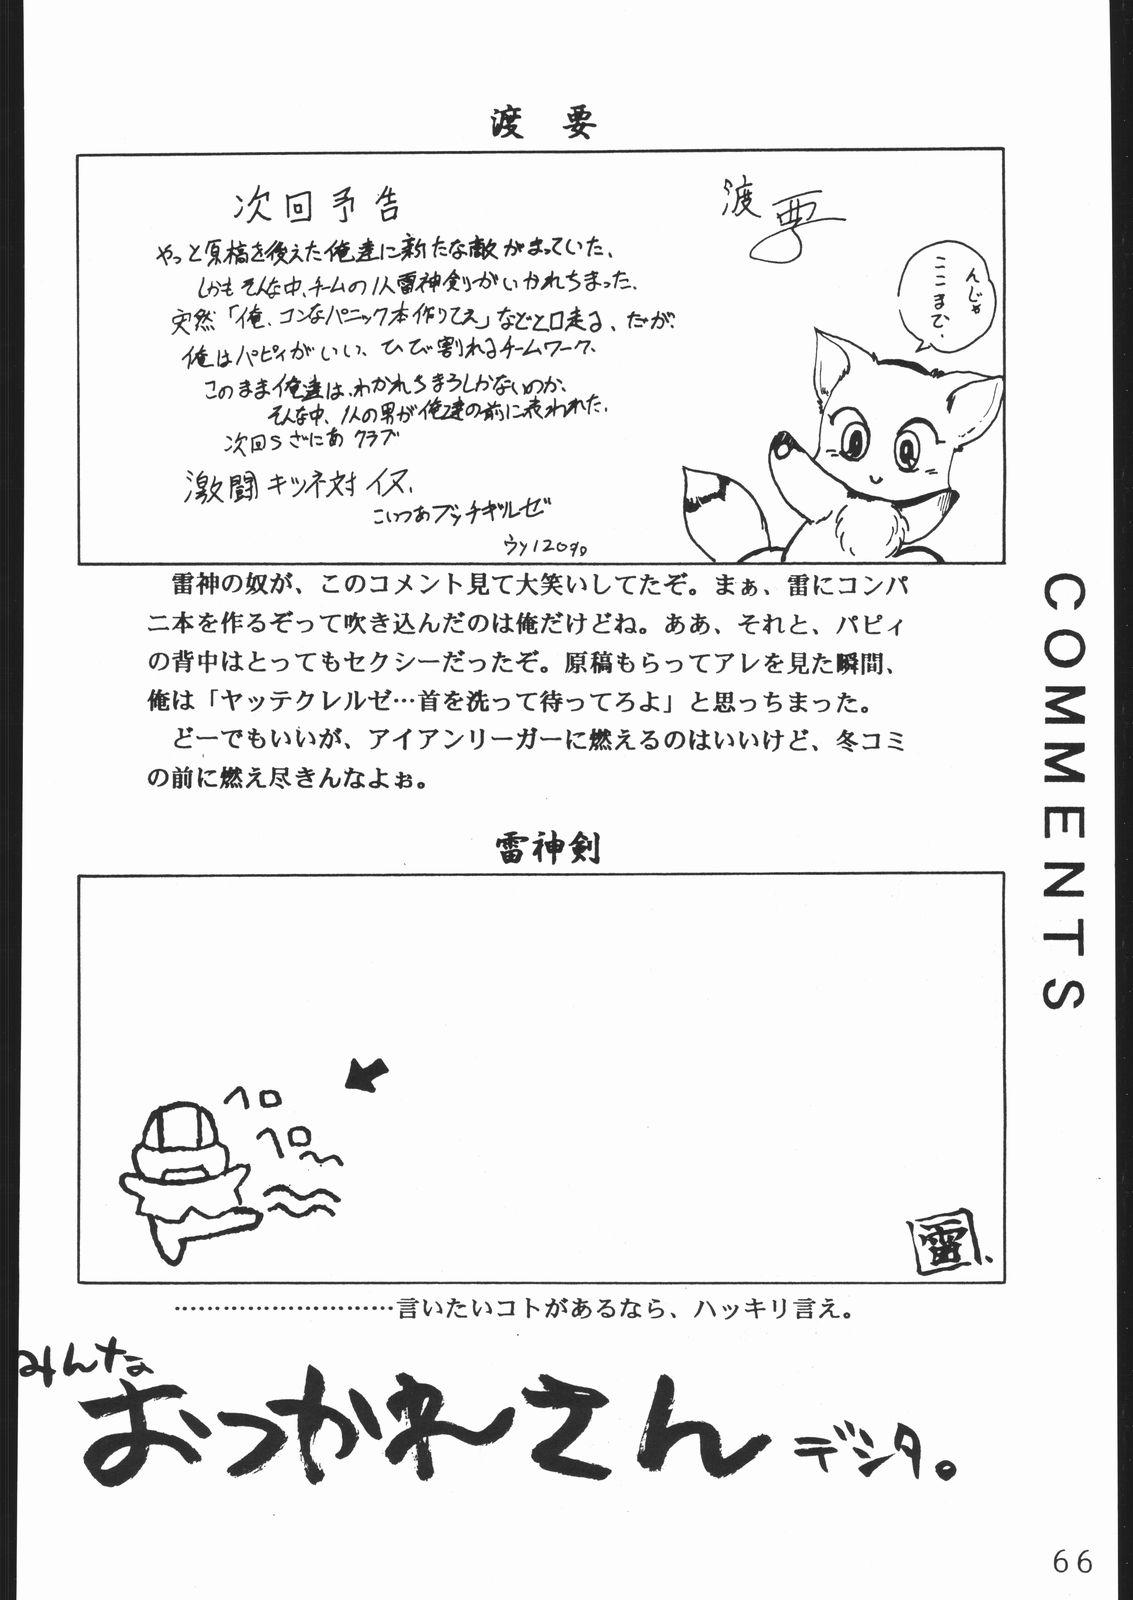 渡 要
次回予告
渡要
やっと原稿を後えた俺達に新たな敵がまっていた、
しかもそんな中、チームの1人雷神剣がいかれちまった、
突然「俺、コンなパニック本作りてえ」などと口走る、だが、
俺はパピィがいい、ひび割れるチームワーク、
このまま俺達は、わかれちまうしかないのか、
そんな中、1人の男が俺達の前に表われた、
次回Sざにあクラブ
激闘キツネ対イヌ、
こいつあブッチギルゼ
んじゃ
ここまで、
雷神の奴が、このコメント見て大笑いしてたぞ。まぁ、雷にコンパ
ニ本を作るぞって吹き込んだのは俺だけどね。ああ、それと、パピィ
の背中はとってもセクシーだったぞ。原稿もらってアレを見た瞬間、
俺は「ヤッテクレルゼ…首を洗って待ってろよ」と思っちまった。
どーでもいいが、アイアンリーガーに燃えるのはいいけど、冬コミ
の前に燃え尽きんなよぉ。
COMMENTS
雷神剣
ヘロ
ヘロ
雷
…………………………言いたいコトがあるなら、ハッキリ言え。
みんな
おつかれさん
デシタ。
66